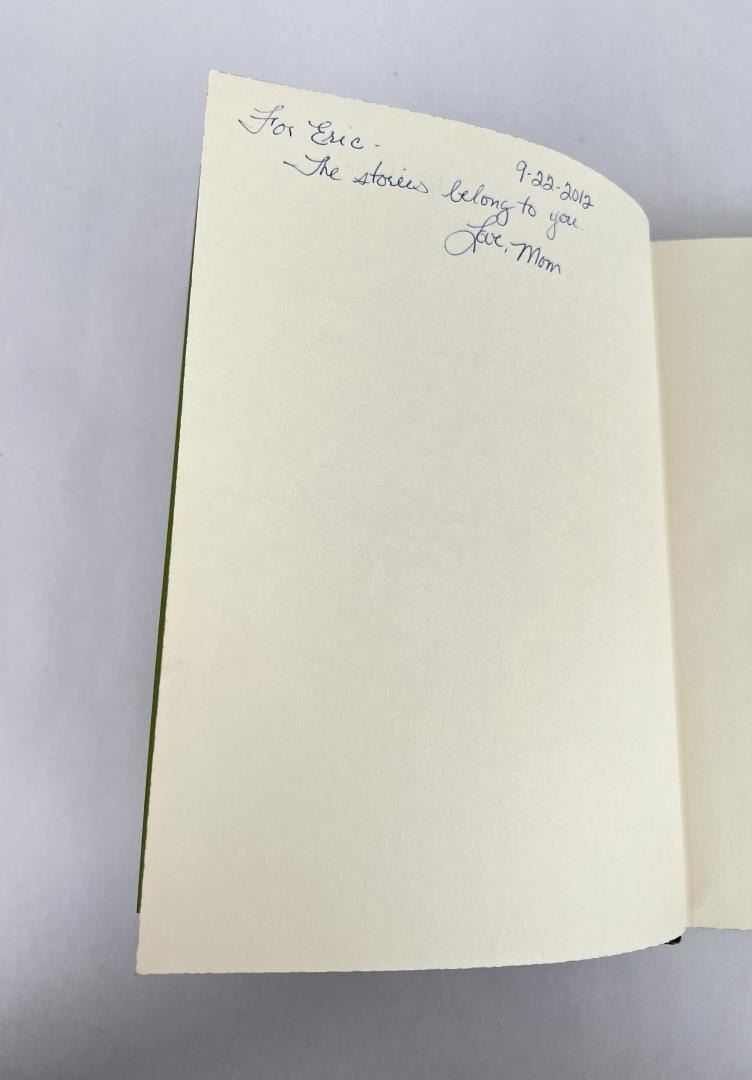 For Eric -
9-22-2012
The stories belong to you.
Love, Mom